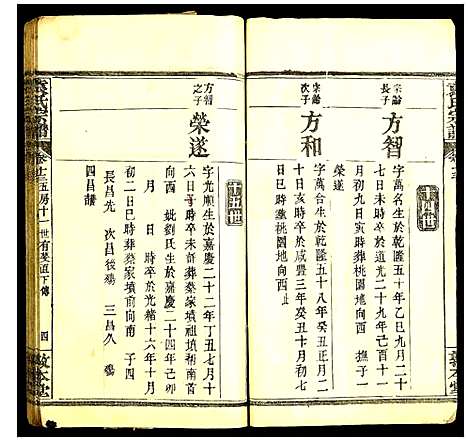 宗諭長子
方智
字萬名生於乾隆五十年乙巳九月二十
七日未時卒於道光二十九年己酉十一
月初九日寅時葬桃園地向西 撫子一
榮遂
宗諭次子
方和
字萬台生於乾隆五十八年癸丑正月
十日亥時卒於咸豐三年癸丑十月初七
日丑時葬桃園地向西
方智之子
榮遂
字光順生於嘉慶二十二年丁丑七月十
六日子時卒未詳葬蔡家墳祖墳前
向西 妣劉氏生於嘉慶二十四年己卯
月 日 時卒於光緒十六年十月
初二日巳時葬蔡家墳前向南 子四
長昌先 次昌後殤 三昌久 殤
四昌譜
袁氏宗譜
卷十三五房十一世有斐直下傳
四
敦本堂